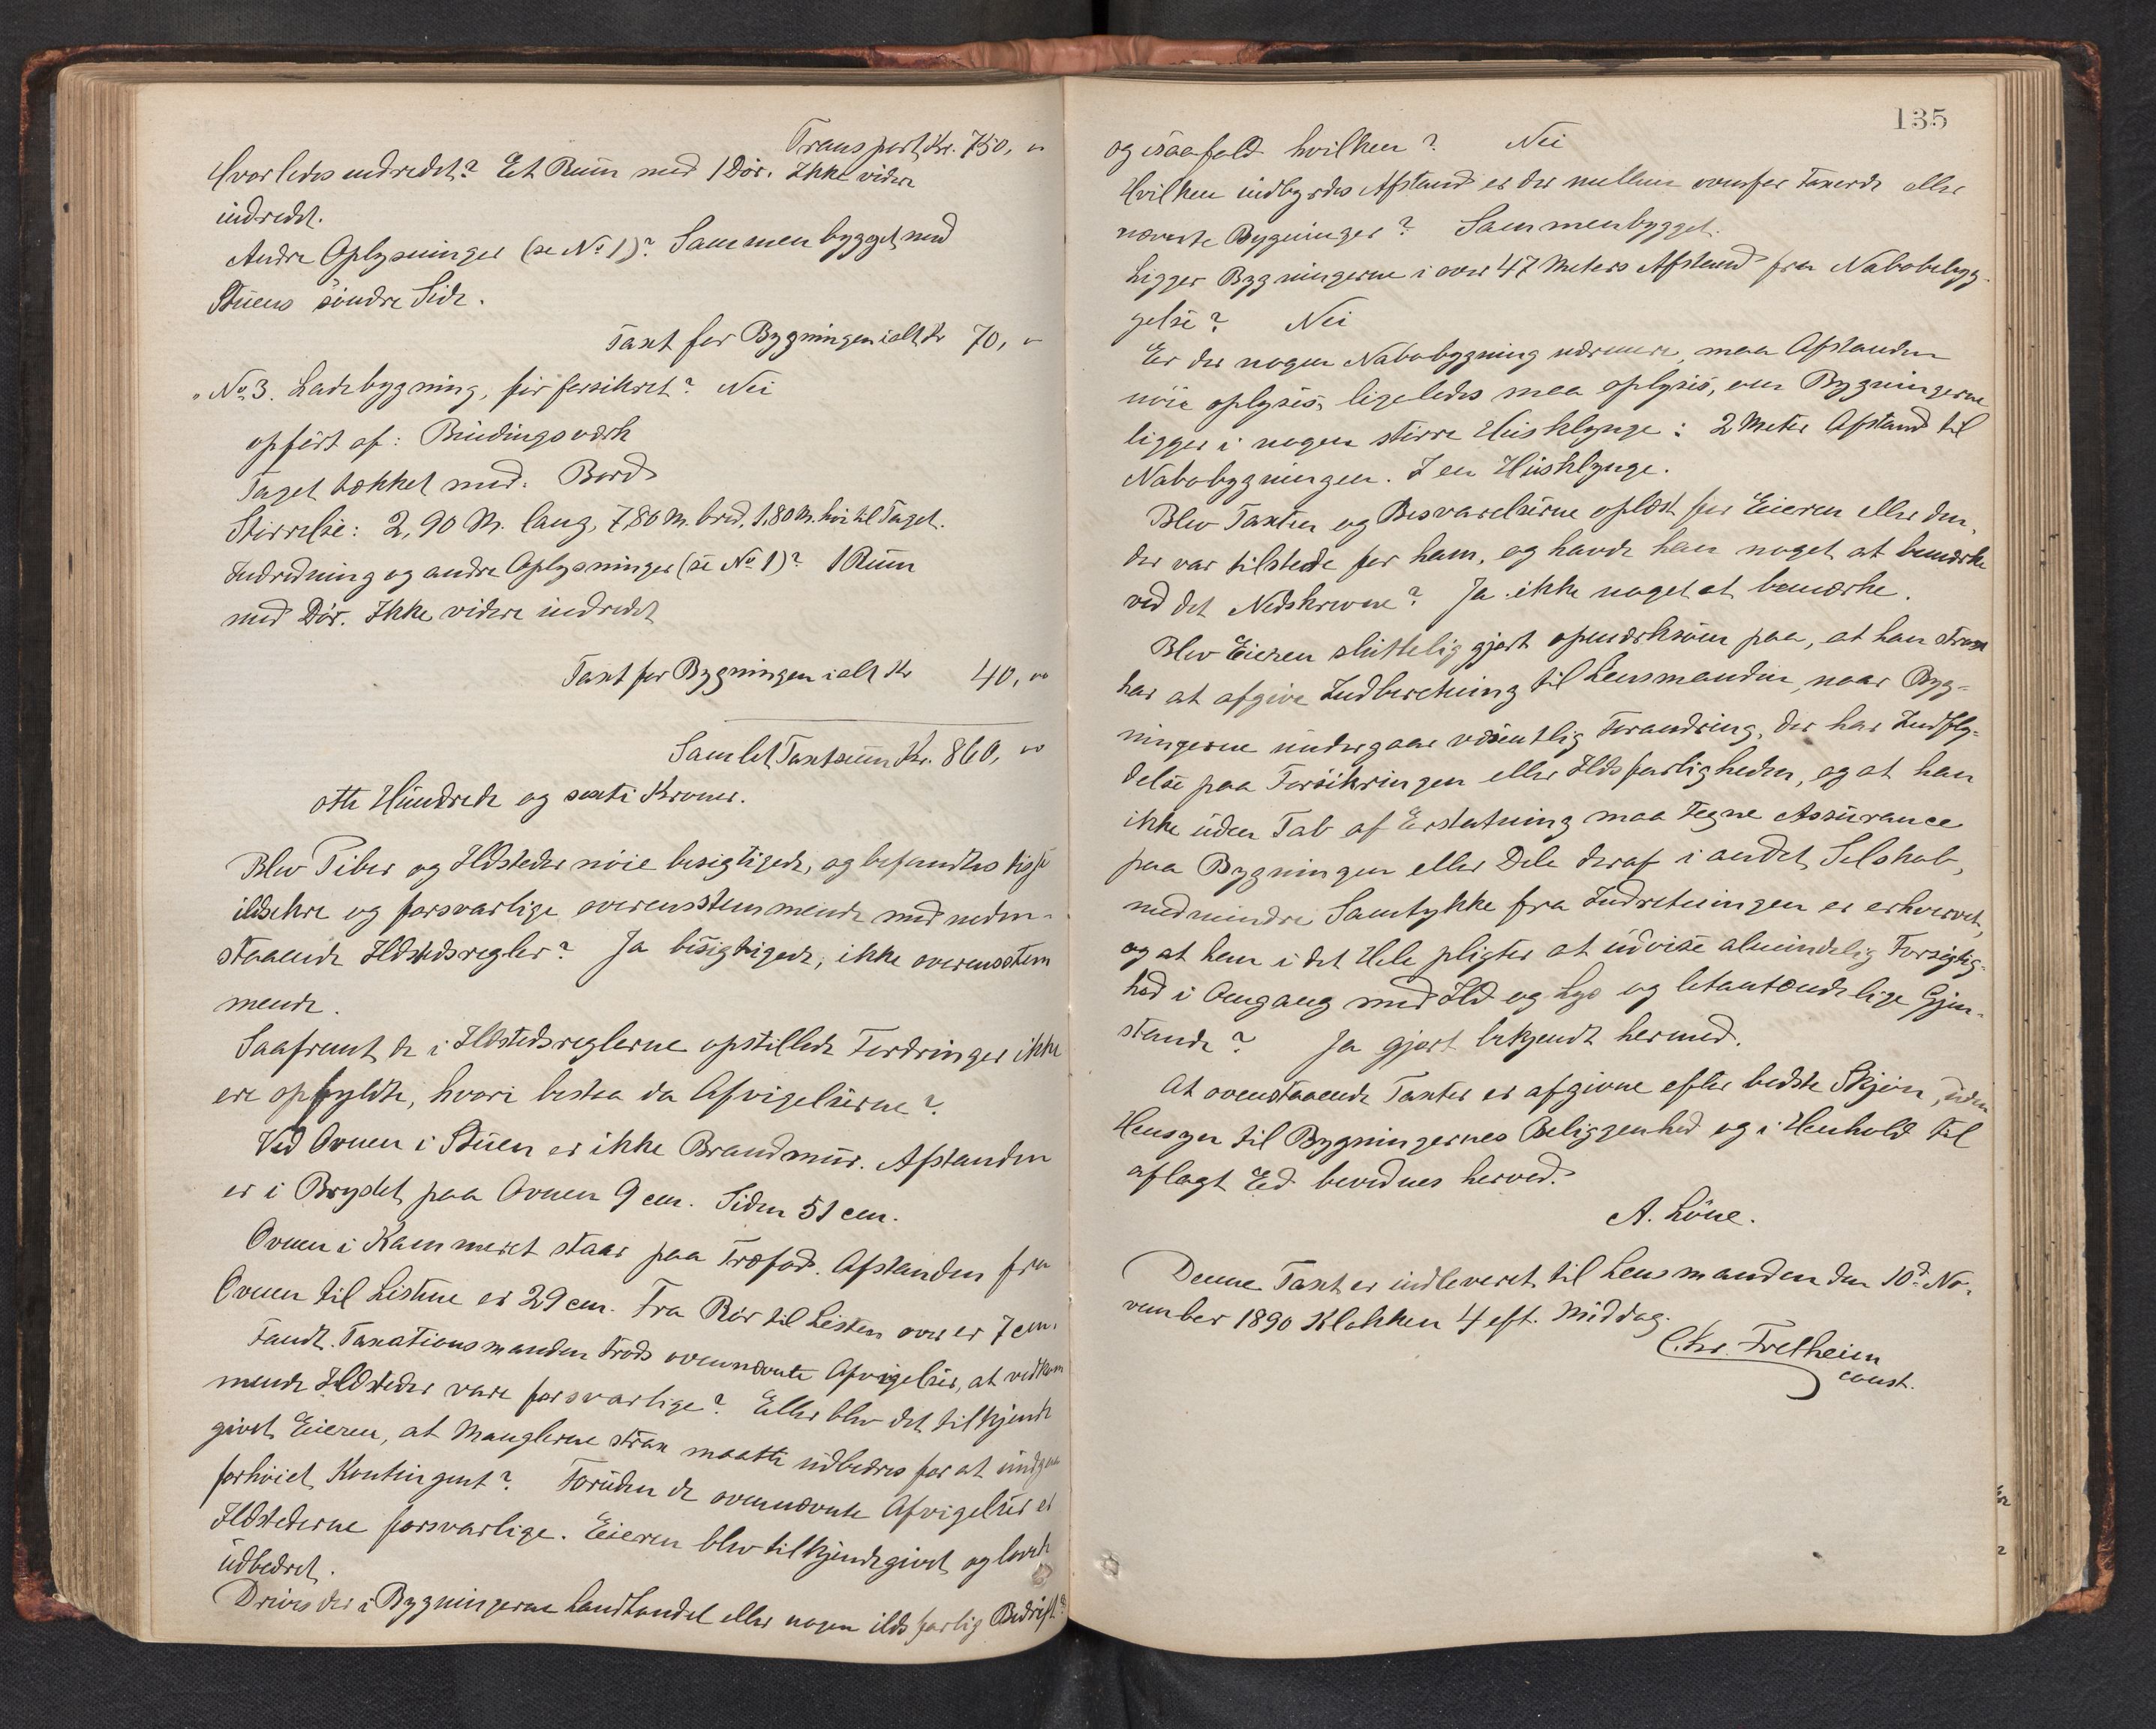 Transport Kr. 750, "
Hvorledes indredet? Et Rum med 1 Dør. Ikke videre
indredet.
Andre Oplysninger (se No 1)? Sammenbygget med
Stuens søndre Side.
Taxt for Bygningen ialt Kr 70, "
" No 3. Ladebygning, før forsikret? Nei
opført af: Bindingsværk
Taget tækket med: Bord
Størrelse: 2,90 M. lang, 7,80 M. bred, 1,80 M. høi til Taget.
Indredning og andre Oplysninger (se No 1)? 1 Rum
med Dør. Ikke videre indredet
Taxt for Bygningen ialt Kr 40, "
Samlet Taxtsum Kr. 860, "
otte Hundrede og sexti Kroner.
Blev Piber og Ildsteder nøie besigtigede, og befandtes disse
ildsikre og forsvarlige overensstemmende med neden-
staaende Ildstedsregler? Ja besigtigede, ikke overensstem
mende.
Saafremt de i Ildstedsreglerne opstillede Fordringer ikke
ere opfyldte, hvori bestaa da Afvigelserne?
Ved Ovnen i Stuen er ikke Brandmur. Afstanden
er i Brystet paa Ovnen 9 cm. Siden 51 cm.
Ovnen i Kammeret staar paa Træfod. Afstanden fra
Ovnen til Listene er 29 cm. Fra Rør til Listen over er 7 cm.
Fandt Taxationsmanden trods ovennævnte Afvigelser, at vedkom
mende Ildsteder vare forsvarlige? Eller blev det tilkjende
givet Eieren, at Manglerne strax maatte udbedres for at undgaa
forhøiet Kontingent? Foruden de ovennævnte Afvigelser er
Ildstederne forsvarlige. Eieren blev tilkjendegivet og lovede
udbedret.
Drives der i Bygningerne Landhandel eller nogen ildsfarlig Bedrift?
135
og isaafald hvilken? Nei
Hvilken indbyrdes Afstand er der mellem ovenfor taxerede eller
nærmeste Bygninger? Sammenbygget.
Ligger Bygningerne i over 47 Meters Afstand fra Nabobebyg-
gelse? Nei
Er der nogen Nabobygning nærmere, maa Afstanden
nøie oplyses, ligeledes maa oplyses, om Bygningerne
ligger i nogen større Husklynge: 2 Meter Afstand til
Nabobygningen. I en Husklynge.
Blev Taxten og Besvarelserne oplæst for Eieren eller den,
der var tilstede for ham, og havde han noget at bemærke
ved det Nedskrevne? Ja ikke noget at bemærke.
Blev Eieren sluttelig gjort opmærksom paa, at han strax
har at afgive Indberetning til Lensmanden, naar Byg-
ningerne undergaar væsentlig Forandring, der har Indfly-
delse paa Forsikringen eller Ildsfarligheden, og at han
ikke uden Tab af Erstatning maa tegne Assurance
paa Bygningen eller Dele deraf i andet Selskab,
medmindre Samtykke fra Indretningen er erhvervet,
og at han i det Hele pligter at udvise almindelig Forsigtig-
hed i Omgang med Ild og Lys og letantændelige Gjen-
stande? Ja gjort bekjendt hermed.
At ovenstaaende Taxter er afgivne efter bedste Skjøn, uden
Hensyn til Bygningernes Beliggenhed og i Henhold til
aflagt Ed bevidnes herved.
A. Løne.
Denne Taxt er indleveret til Lensmanden den 10de No-
vember 1890 Klokken 4 eft. Middag.
Chr. Fretheim
const.